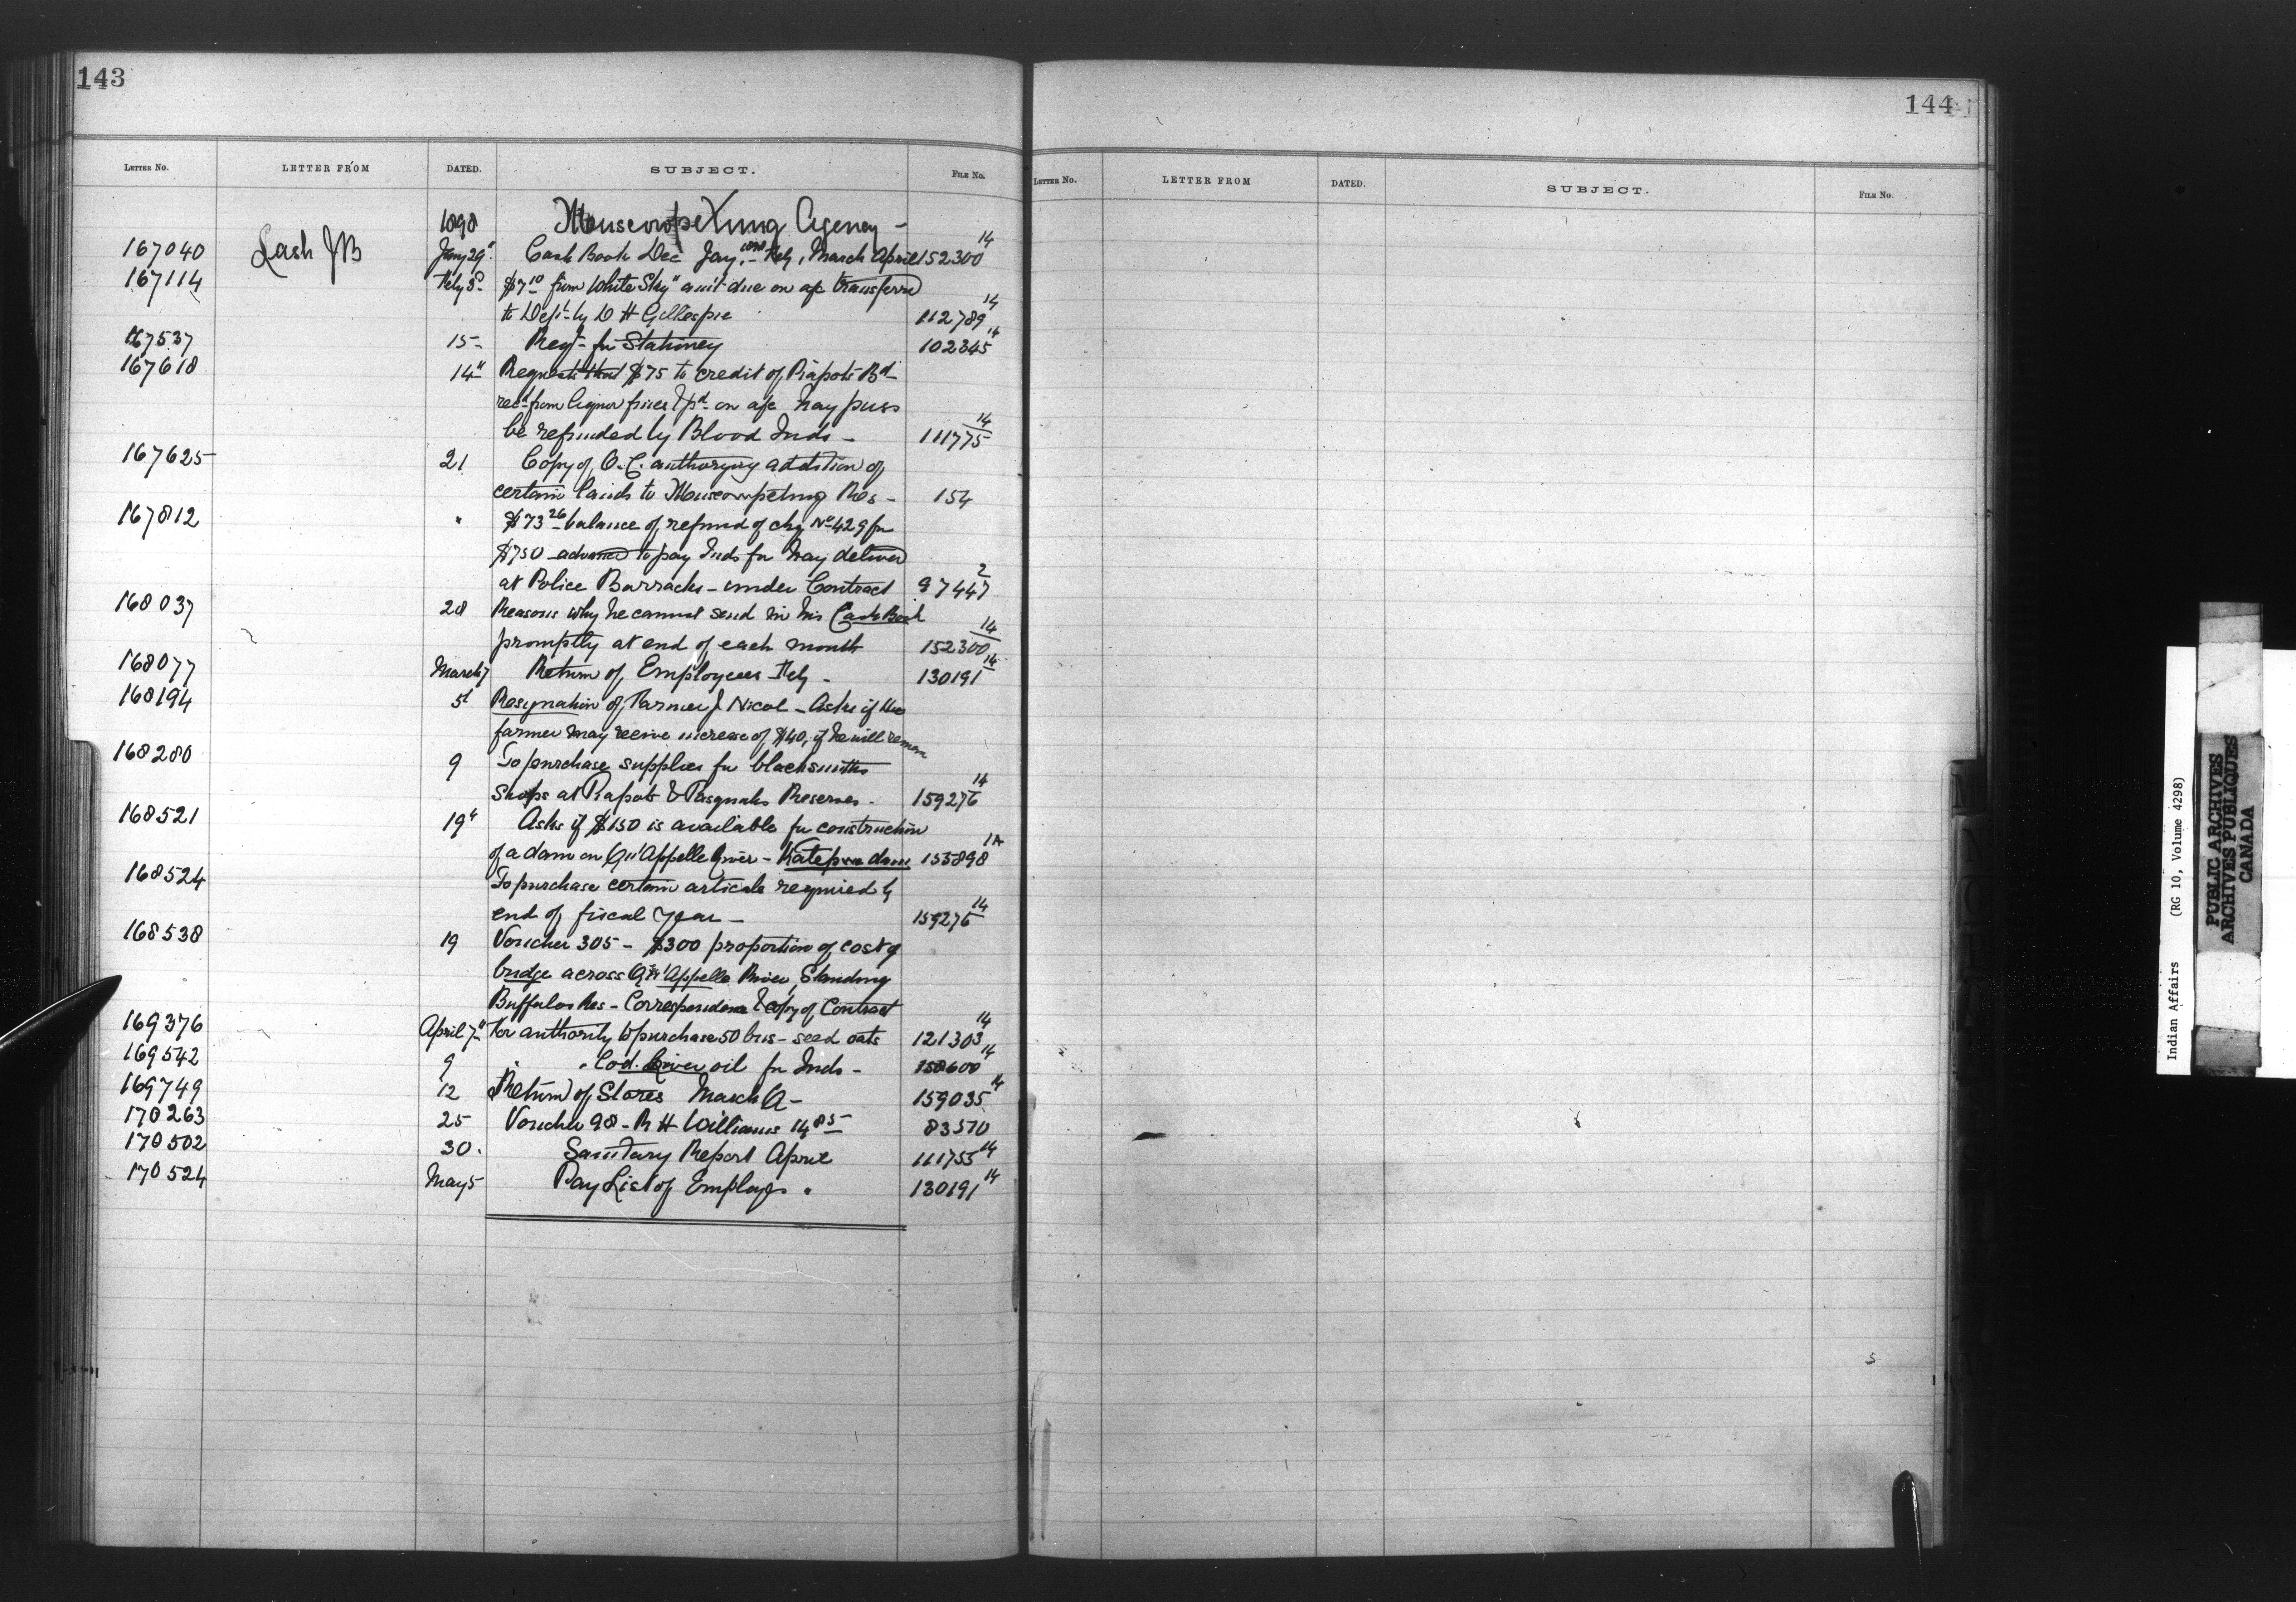 143
LETTER NO. LETTER FROM DATED. SUBJECT. FILE No.
1898 Muscowpetung Agency -
167040 Lash JB Jany 29" Cash Book Dec Jany. 1898 Feby, March April 152300 14
167114 Feby 3d $7 10 from White Sky" am't due on a/c transferred
to Dept by D H Gillespie 112789 14
167537 15- Reqt for Stationery 102345 14
167618 14" Requests that $75 to credit of Piapots Bd
recd from liquor fines & pd on a/c hay press
be refunded by Blood Inds - 111775 14
167625 21 Copy of O.C. authorizing addition of
certain lands to Muscowpetung Res - 154
167812 " $73 26 balance of refund of chq No 429 for
$750 advanced to pay Inds for hay deliver
at Police Barracks - under Contract 97447 2
168037 28 Reasons why he cannot send in his Cash Book
promptly at end of each month 152300 14
168077 March 7 Return of Employees Feby - 130191 14
168194 5th Resignation of Farmer J Nicol - Asks if the
farmer may receive increase of $40, if he will remain
168280 9 To purchase supplies for blacksmiths
Shops at Piapots & Pasquahs Reserves - 159276 14
168521 19th Asks if $150 is available for construction
of a dam on Qu'Appelle River - Katepwa dam 155898 14
168524 To purchase certain articals required by
end of fiscal year - 159276 14
168538 19 Voucher 305 - $300 proportion of cost of
bridge across Qu'Appelle River, Standing
Buffalos Res - Correspondence & copy of Contract
169376 April 7" For authority to purchase 50 bus - seed oats 121303 14
169542 9 " " Cod. Liver oil for Inds - 158600 14
169749 12 Return of Stores March Q - 159035 14
170263 25 Voucher 98 - R H Williams 14 85 83570
170502 30. Sanitary Report April 111755 14
170524 May 5 Pay List of Employes " 130191 14
144
LETTER NO. LETTER FROM DATED. SUBJECT. FILE No.
Indian Affairs (RG 10, Volume 4298)
PUBLIC ARCHIVES
ARCHIVES PUBLIQUES
CANADA